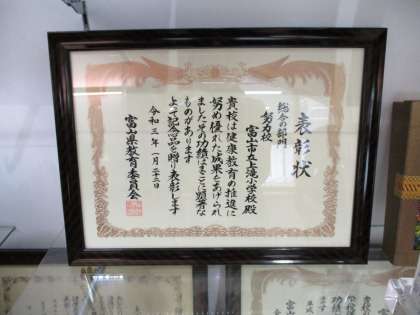 表彰状
総合の部門
努力校
富山市立上滝小学校殿
貴校は健康教育の推進に
努め優れた成果をあげられ
ましたその功績はまことに顕著な
ものがあります
よって記念品を贈り表彰します
令和三年一月二十二日
富山県教育委員会